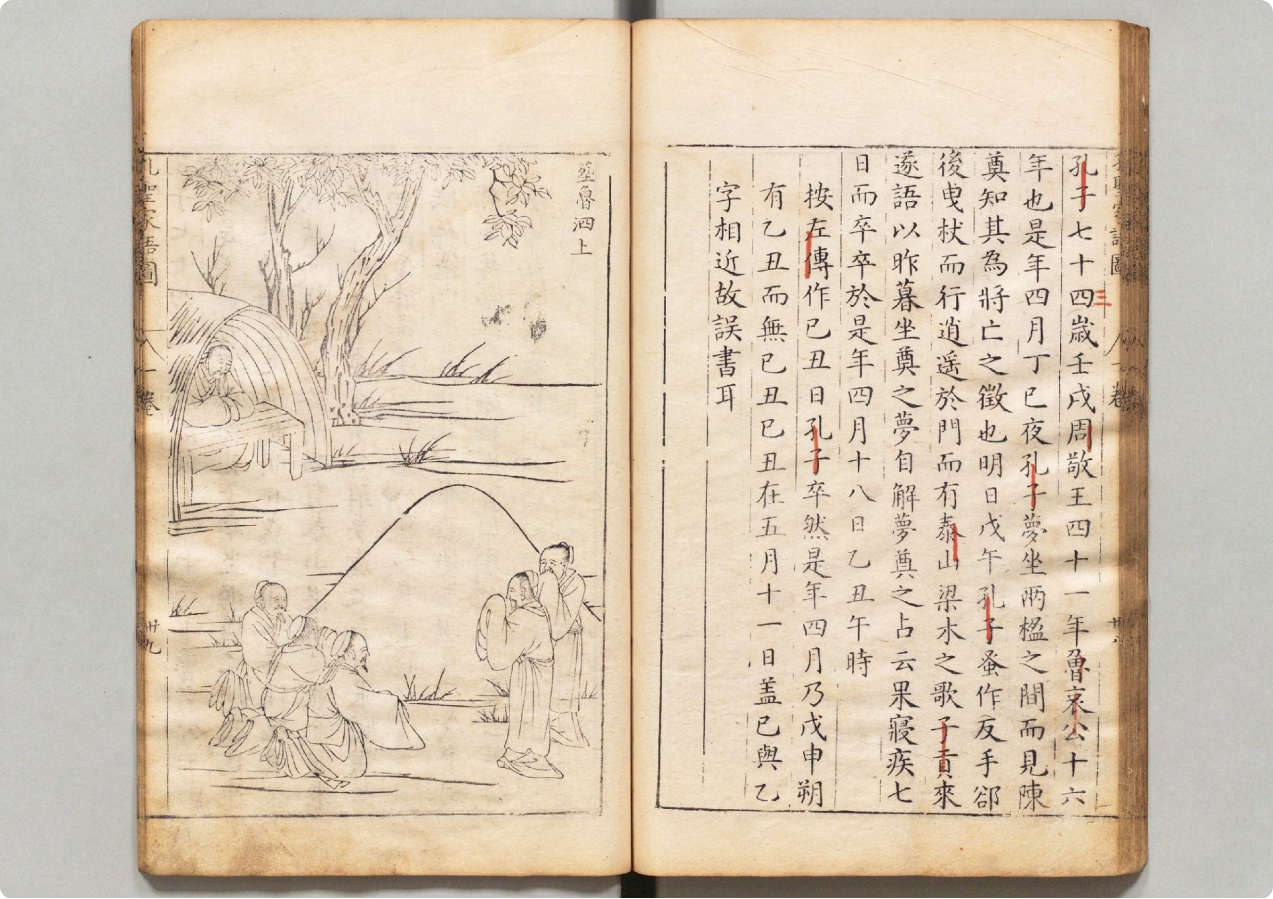 孔子七十四歲壬戌周敬王四十一年魯哀公十六
年也是年四月丁巳夜孔子夢坐兩楹之間而見陳
奠知其為將亡之徵也明日戊午孔子蚤作反手郤
後曳杖而行逍遥於門而有泰山梁木之歌子貢來
遂語以昨暮坐奠之夢自解夢奠之占云果寢疾七
日而卒卒於是年四月十八日乙丑午時
按左傳作已丑日孔子卒然是年四月乃戊申朔
有乙丑而無已丑已丑在五月十一日盖已與乙
字相近故誤書耳
塟魯泗上
孔聖家語圖
八一卷
卅九